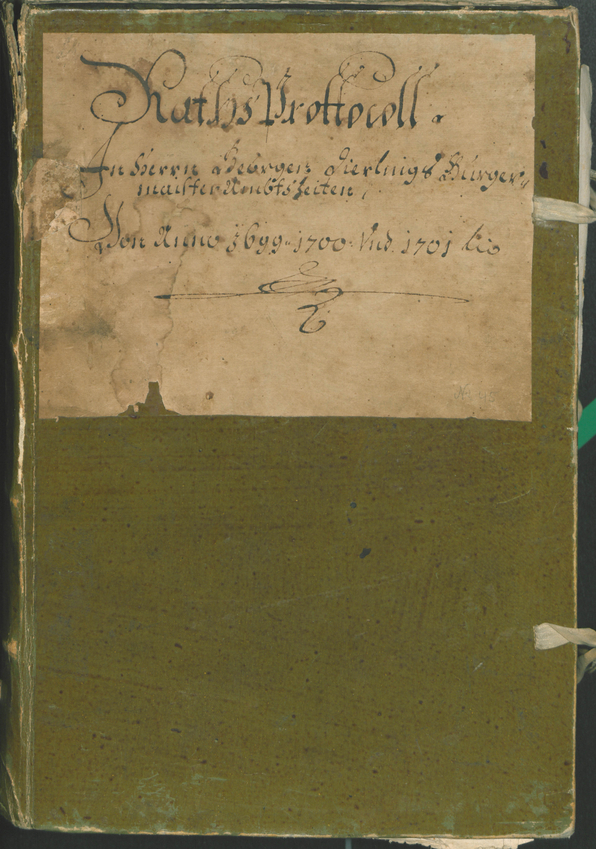 Raths Prottocoll.
In Herrn Georgen Zierlnigs Bürger„
maister Ambtszeiten,
Von Anno 1699. 1700. Vnd 1701